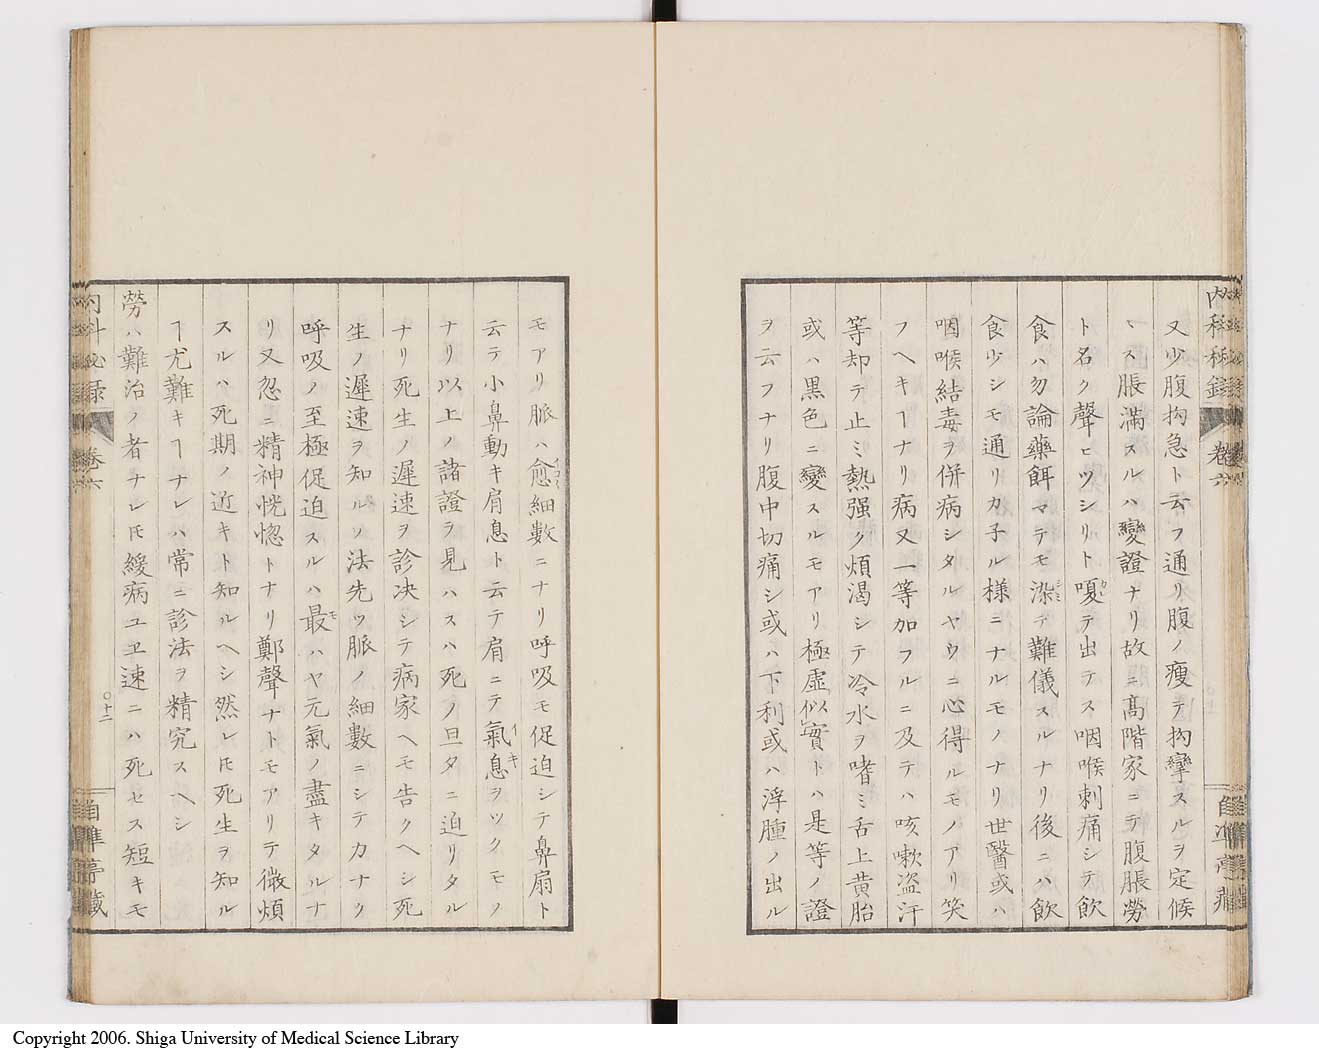 又少腹拘急ト云フ通リ腹ノ瘦テ拘攣スルヲ定候
トス脹滿スルハ變證ナリ故ニ高階家ニテ腹脹勞
ト名ク聲ヒツシリト嗄テ出テス咽喉刺痛シテ飮
食ハ勿論藥餌マテモ染テ難儀スルナリ後ニハ飮
食少シモ通リカ子ル樣ニナルモノナリ世醫或ハ
咽喉結毒ヲ併病シタルヤウニ心得ルモノアリ笑
フヘキヿナリ病又一等加フルニ及テハ咳嗽盗汗
等却テ止ミ熱强ク煩渴シテ冷水ヲ嗜ミ舌上黄胎
或ハ黒色ニ變スルモアリ極虛似實トハ是等ノ證
ヲ云フナリ腹中切痛シ或ハ下利或ハ浮腫ノ出ル
内科秘録 卷六
自準亭藏
モアリ脈ハ愈細數ニナリ呼吸モ促迫シテ鼻扇ト
云テ小鼻動キ肩息ト云テ肩ニテ氣息ヲツクモノ
ナリ以上ノ諸證ヲ見ハスハ死ノ旦タニ迫リタル
ナリ死生ノ遲速ヲ診决シテ病家ヘモ告クヘシ死
生ノ遲速ヲ知ルノ法先ツ脈ノ細數ニシテカナク
呼吸ノ至極促迫スルハ最ハヤ元氣ノ盡キタルナ
リ又忽ニ精神恍惚トナリ鄭聲ナトモアリテ微煩
スルハ死期ノ近キト知ルヘシ然レ𪜈死生ヲ知ル
ヿ尤難キヿナレハ常ニ診法ヲ精究スヘシ
勞ハ難治ノ者ナレ𪜈緩病ユヱ速ニハ死セス短キモ
内科秘録 卷六
十二
自準亭藏
Copyright 2006. Shiga University of Medical Science Library